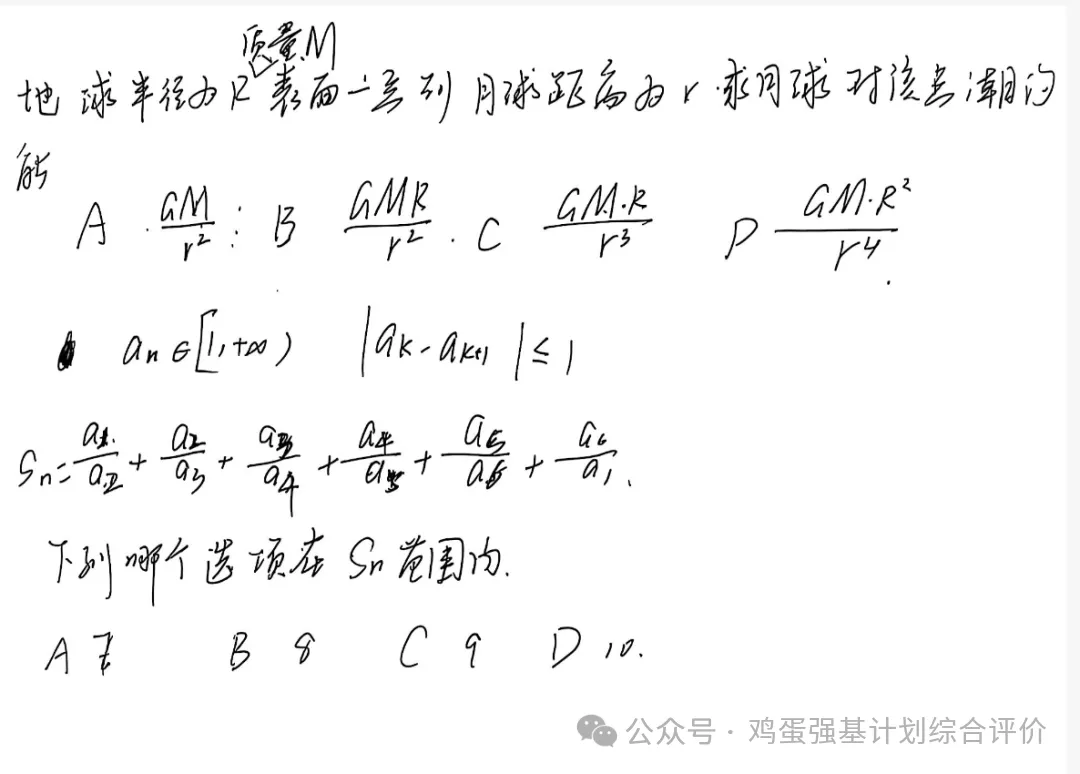 质量M
地球半径为R 表面一点到月球距离为r.求月球对该点潮汐的
能
A. GM/r² : B GMR/r² . C GM·R/r³ D GM·R²/r⁴ .
aₙ∈[1,+∞) |aₖ-aₖ₊₁|≤1
Sₙ=a₁/a₂+a₂/a₃+a₃/a₄+a₄/a₅+a₅/a₆+a₆/a₁.
下列哪个选项在Sₙ范围内.
A 7 B 8 C 9 D 10.
公众号·鸡蛋强基计划综合评价